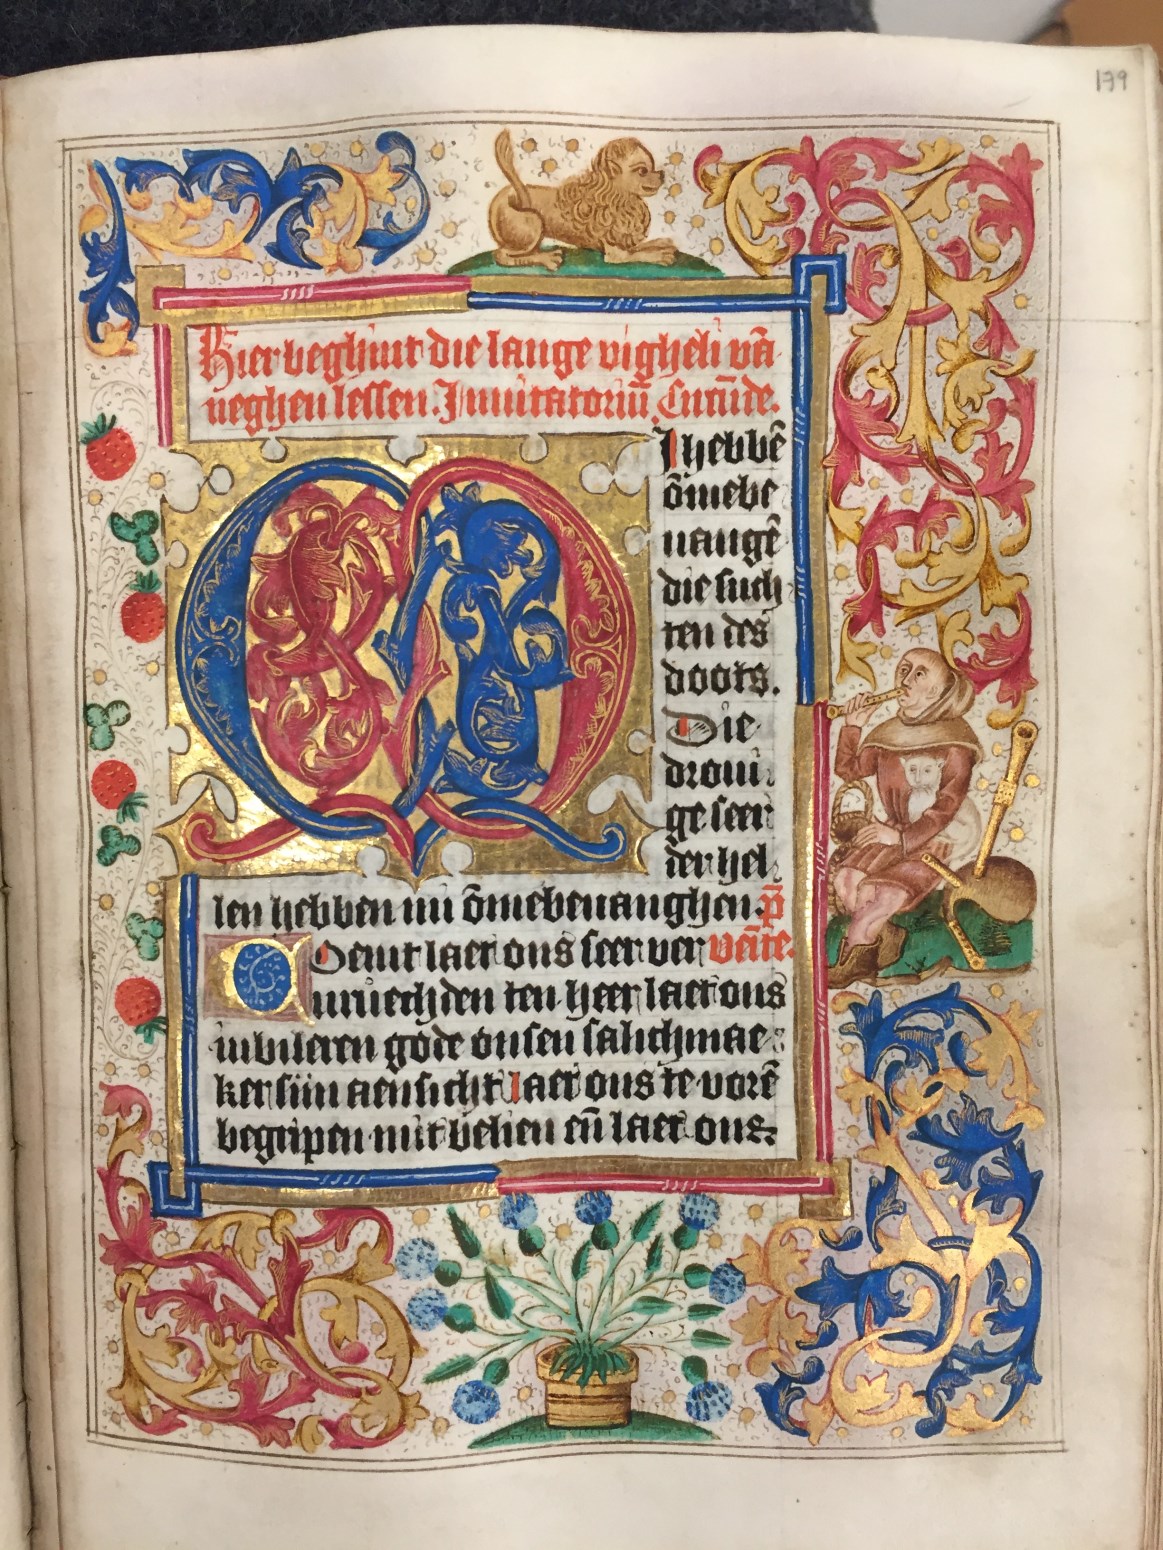 179
Hier beghint die lange vigheli vā
neghen lessen. Inuitatoriū Circūde.
Mi hebbē
ōmebe
uangē
die such
ten des
doots.
Die
droui
ge seer
der hel
len hebben mi ōmebeuanghen. p̄
Coemt laet ons seer ver venīte.
uruechden ten heer laet ons
iubileren gode onsen salichmae
ker siin aensicht laet ons te vorē
begripen mit belien eñ laet ons